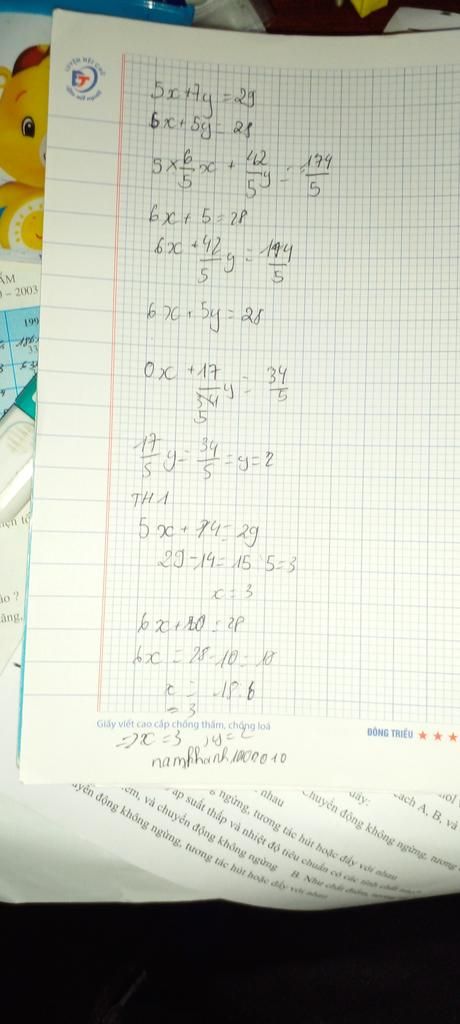 LUYỆN NÉT CHỮ
ĐT
5x+7y=29
6x+5y=28
5×6/5x + 42/5y = 174/5
6x+5=28
6x+42/5y=174/5
6x+5y=28
0x+17/5y=34/5
17/5y=34/5=y=2
TH1
5x+14=29
29-14=15:5=3
x=3
6x+10=28
6x=28-10=18
x=18:6
=3
Giấy viết cao cấp chống thấm, chống loá
ĐÔNG TRIỀU ★ ★ ★
=>x=3, y=2
ẮM
– 2003
199
ào ?
ăng,
nhau
áp suất thấp và nhiệt độ tiêu chuẩn có các tính chất
ngừng, tương tác hút hoặc đẩy với nhau
Chuyển động không ngừng, tương
ách A, B, và
êm, và chuyển động không ngừng
B. Như chất điểm,
uyển động không ngừng, tương tác hút hoặc đẩy với nhau